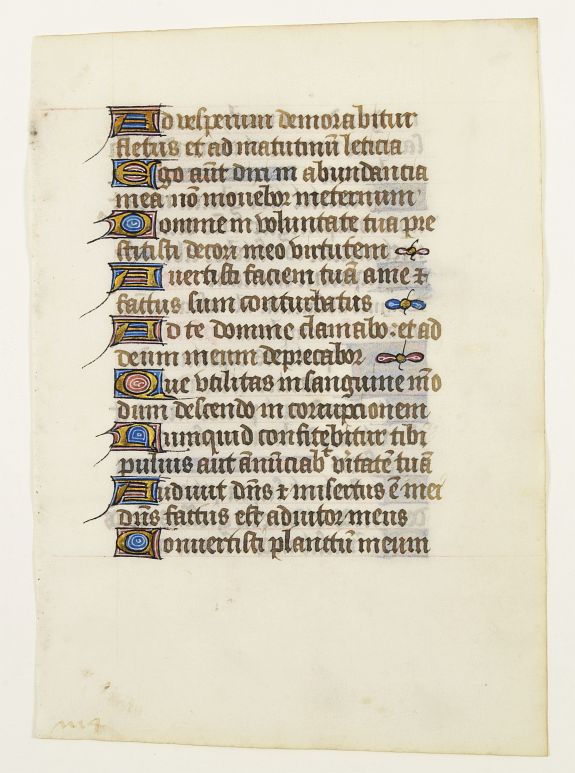 Ad vesperum demorabitur
fletus et ad matutinū leticia
Ego aūt dixi in abundancia
mea nō movebor in eternum
Domine in voluntate tua pre
stitisti decori meo virtutem
Avertisti faciem tuā a me ⁊
factus sum conturbatus
Ad te domine clamabo: et ad
deum meum deprecabor
Que utilitas in sanguine m̄o
dum descendo in corrupcionem
Numquid confitebitur tibi
pulvis aut ānūciab̄ vitatē tuā
Audivit dn̄s ⁊ misertus ē mei
dn̄s factus est adiutor meus
Convertisti planctū meum